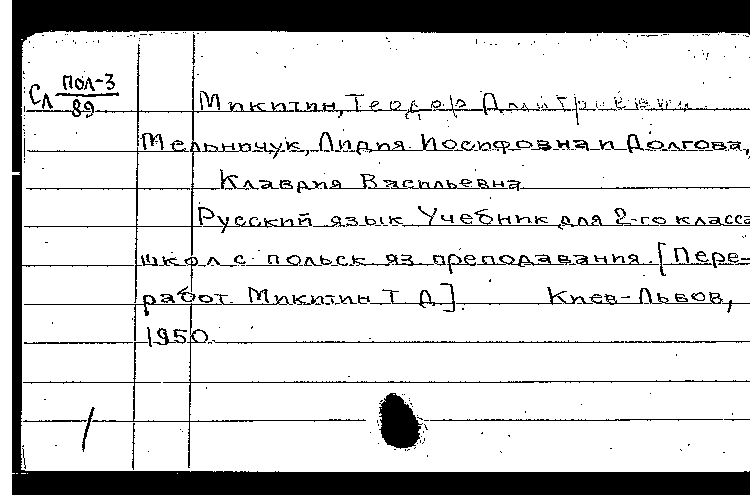 Сл пол-3
89
Микитин, Теодор Дмитриевич
Мельничук, Лидия Иосифовна и Долгова,
Клавдия Васильевна
Русский язык Учебник для 2-го класса
школ с польск яз. преподавания. [Пере-
работ. Микитин Т Д]. Киев-Львов,
1950.